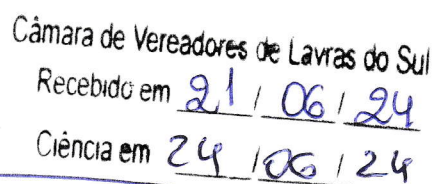 Câmara de Vereadores de Lavras do Sul
Recebido em 21 / 06 / 24
Ciência em 24 / 06 / 24